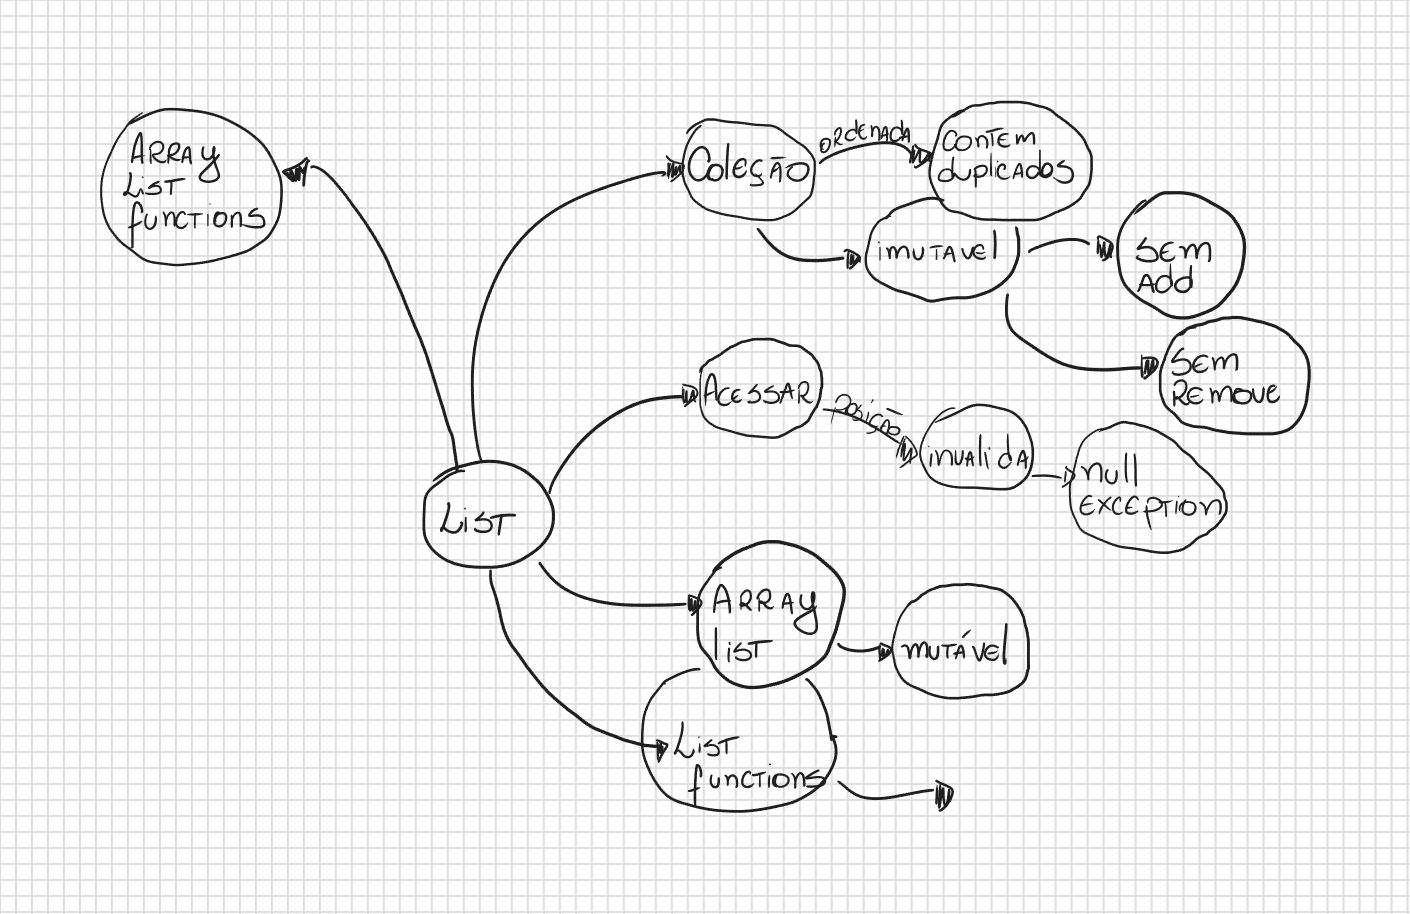 ARRAY
LIST
functions
Coleção
ORDENADA
CONTEM
duplicados
imutavel
SEM
Add
SEM
REMOVE
ACESSAR
posição
invalida
null
EXCEPTION
LIST
ARRAY
LIST
mutável
LIST
functions